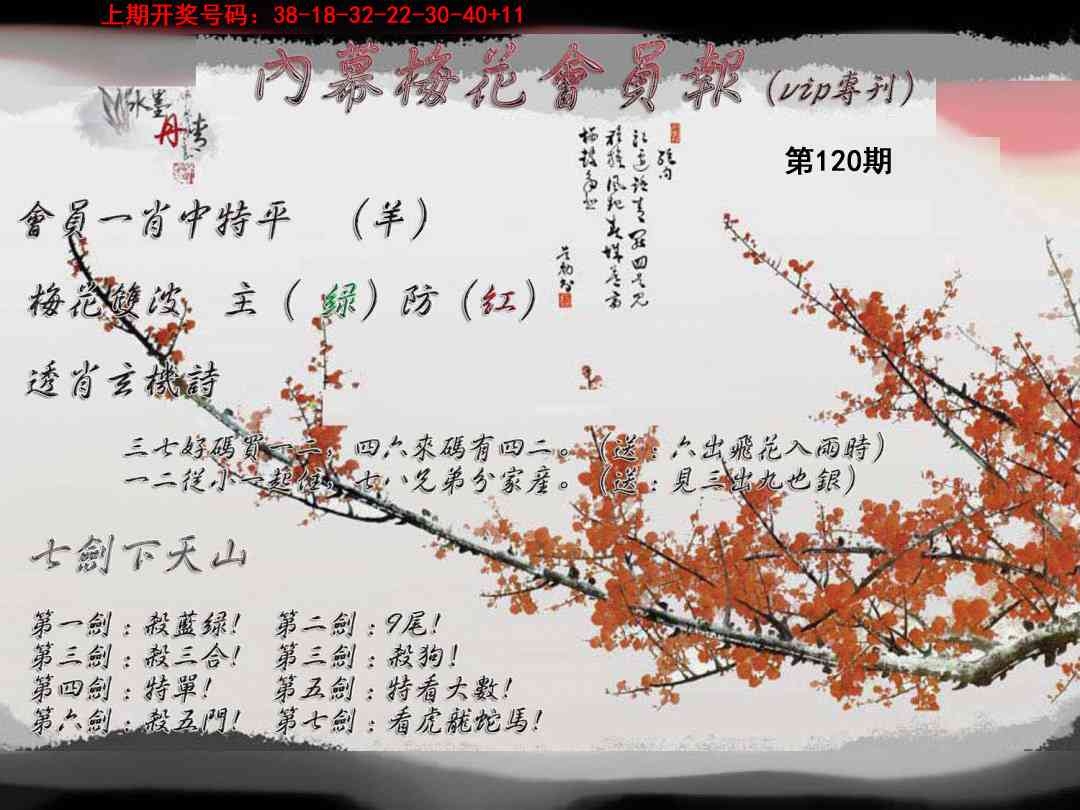 上期开奖号码：38-18-32-22-30-40+11
內幕梅花會員報（vip專刊）
水墨
丹青
第120期
會員一肖中特平　（羊）
梅花雙波　主（ 绿）防（红）
透肖玄機詩
三七好碼買一二，四六來碼有四二。（送：六出飛花入雨時）
一二從小一起住，七八兄弟分家產。（送：見三出九也銀）
七劍下天山
第一劍：殺藍绿！　第二劍：9尾！
第三劍：殺三合！　第三劍：殺狗！
第四劍：特單！　第五劍：特看大數！
第六劍：殺五門！　第七劍：看虎龍蛇馬！